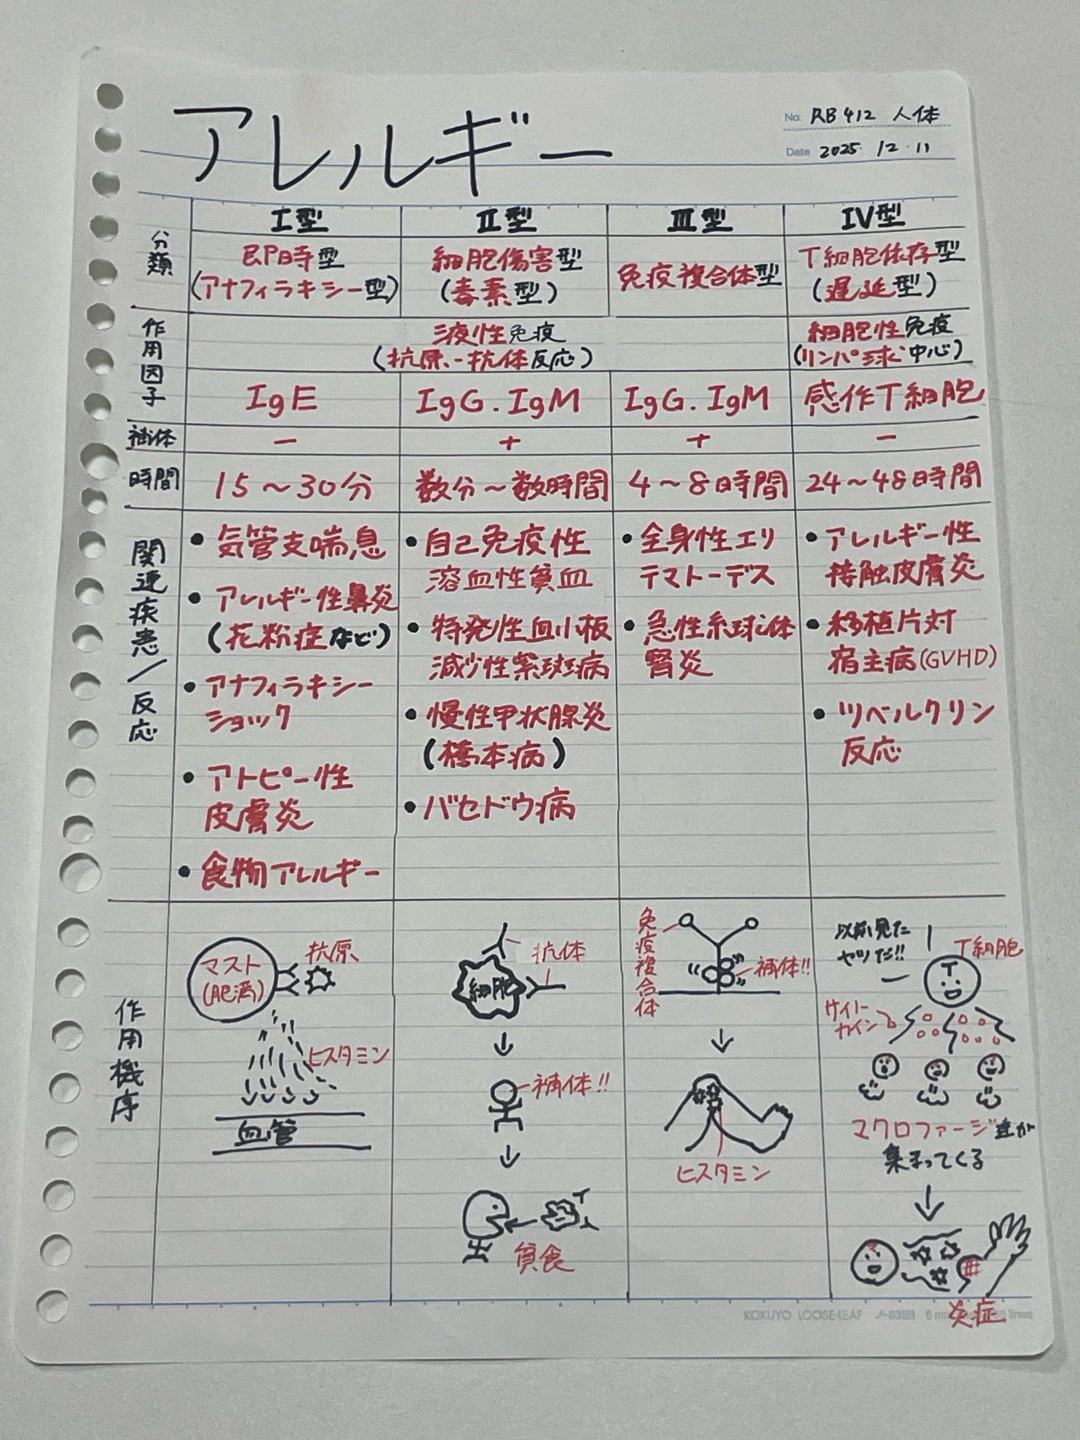 アレルギー
No. RB412 人体
Date 2025・12・11
I型 II型 III型 IV型
分類
即時型
(アナフィラキシー型)
細胞傷害型
(毒素型)
免疫複合体型
T細胞依存型
(遅延型)
作用因子
液性免疫
(抗原-抗体反応)
細胞性免疫
(リンパ球中心)
IgE
IgG.IgM
IgG.IgM
感作T細胞
補体
− + + −
時間
15〜30分
数分〜数時間
4〜8時間
24〜48時間
関連疾患/反応
・気管支喘息
・アレルギー性鼻炎
(花粉症など)
・アナフィラキシー
ショック
・アトピー性
皮膚炎
・食物アレルギー
・自己免疫性
溶血性貧血
・特発性血小板
減少性紫斑病
・慢性甲状腺炎
(橋本病)
・バセドウ病
・全身性エリ
テマトーデス
・急性糸球体
腎炎
・アレルギー性
接触皮膚炎
・移植片対
宿主病(GVHD)
・ツベルクリン
反応
作用機序
マスト
(肥満)
抗原
ヒスタミン
血管
抗体
細胞
補体!!
貧食
免疫複合体
補体!!
ヒスタミン
以前見た
ヤツだ!!
T細胞
T
サイト
カイン
マクロファージ達が
集まってくる
炎症
KOKUYO LOOSE-LEAF